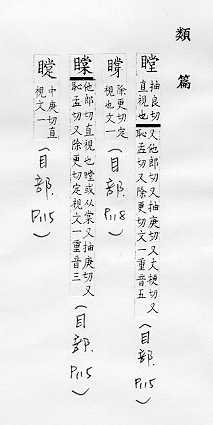 類篇
瞠
抽良切又他郎切又抽庚切又丈梗切又
直視也恥孟切又除更切文一重音五
(目部. P115)
除更切定
視文一
(目部. P118)
他郎切直視也瞠或从棠又抽庚切又
恥孟切又除更切定視文一重音三
(目部. P115)
中庚切直
視文一
(目部. P115)